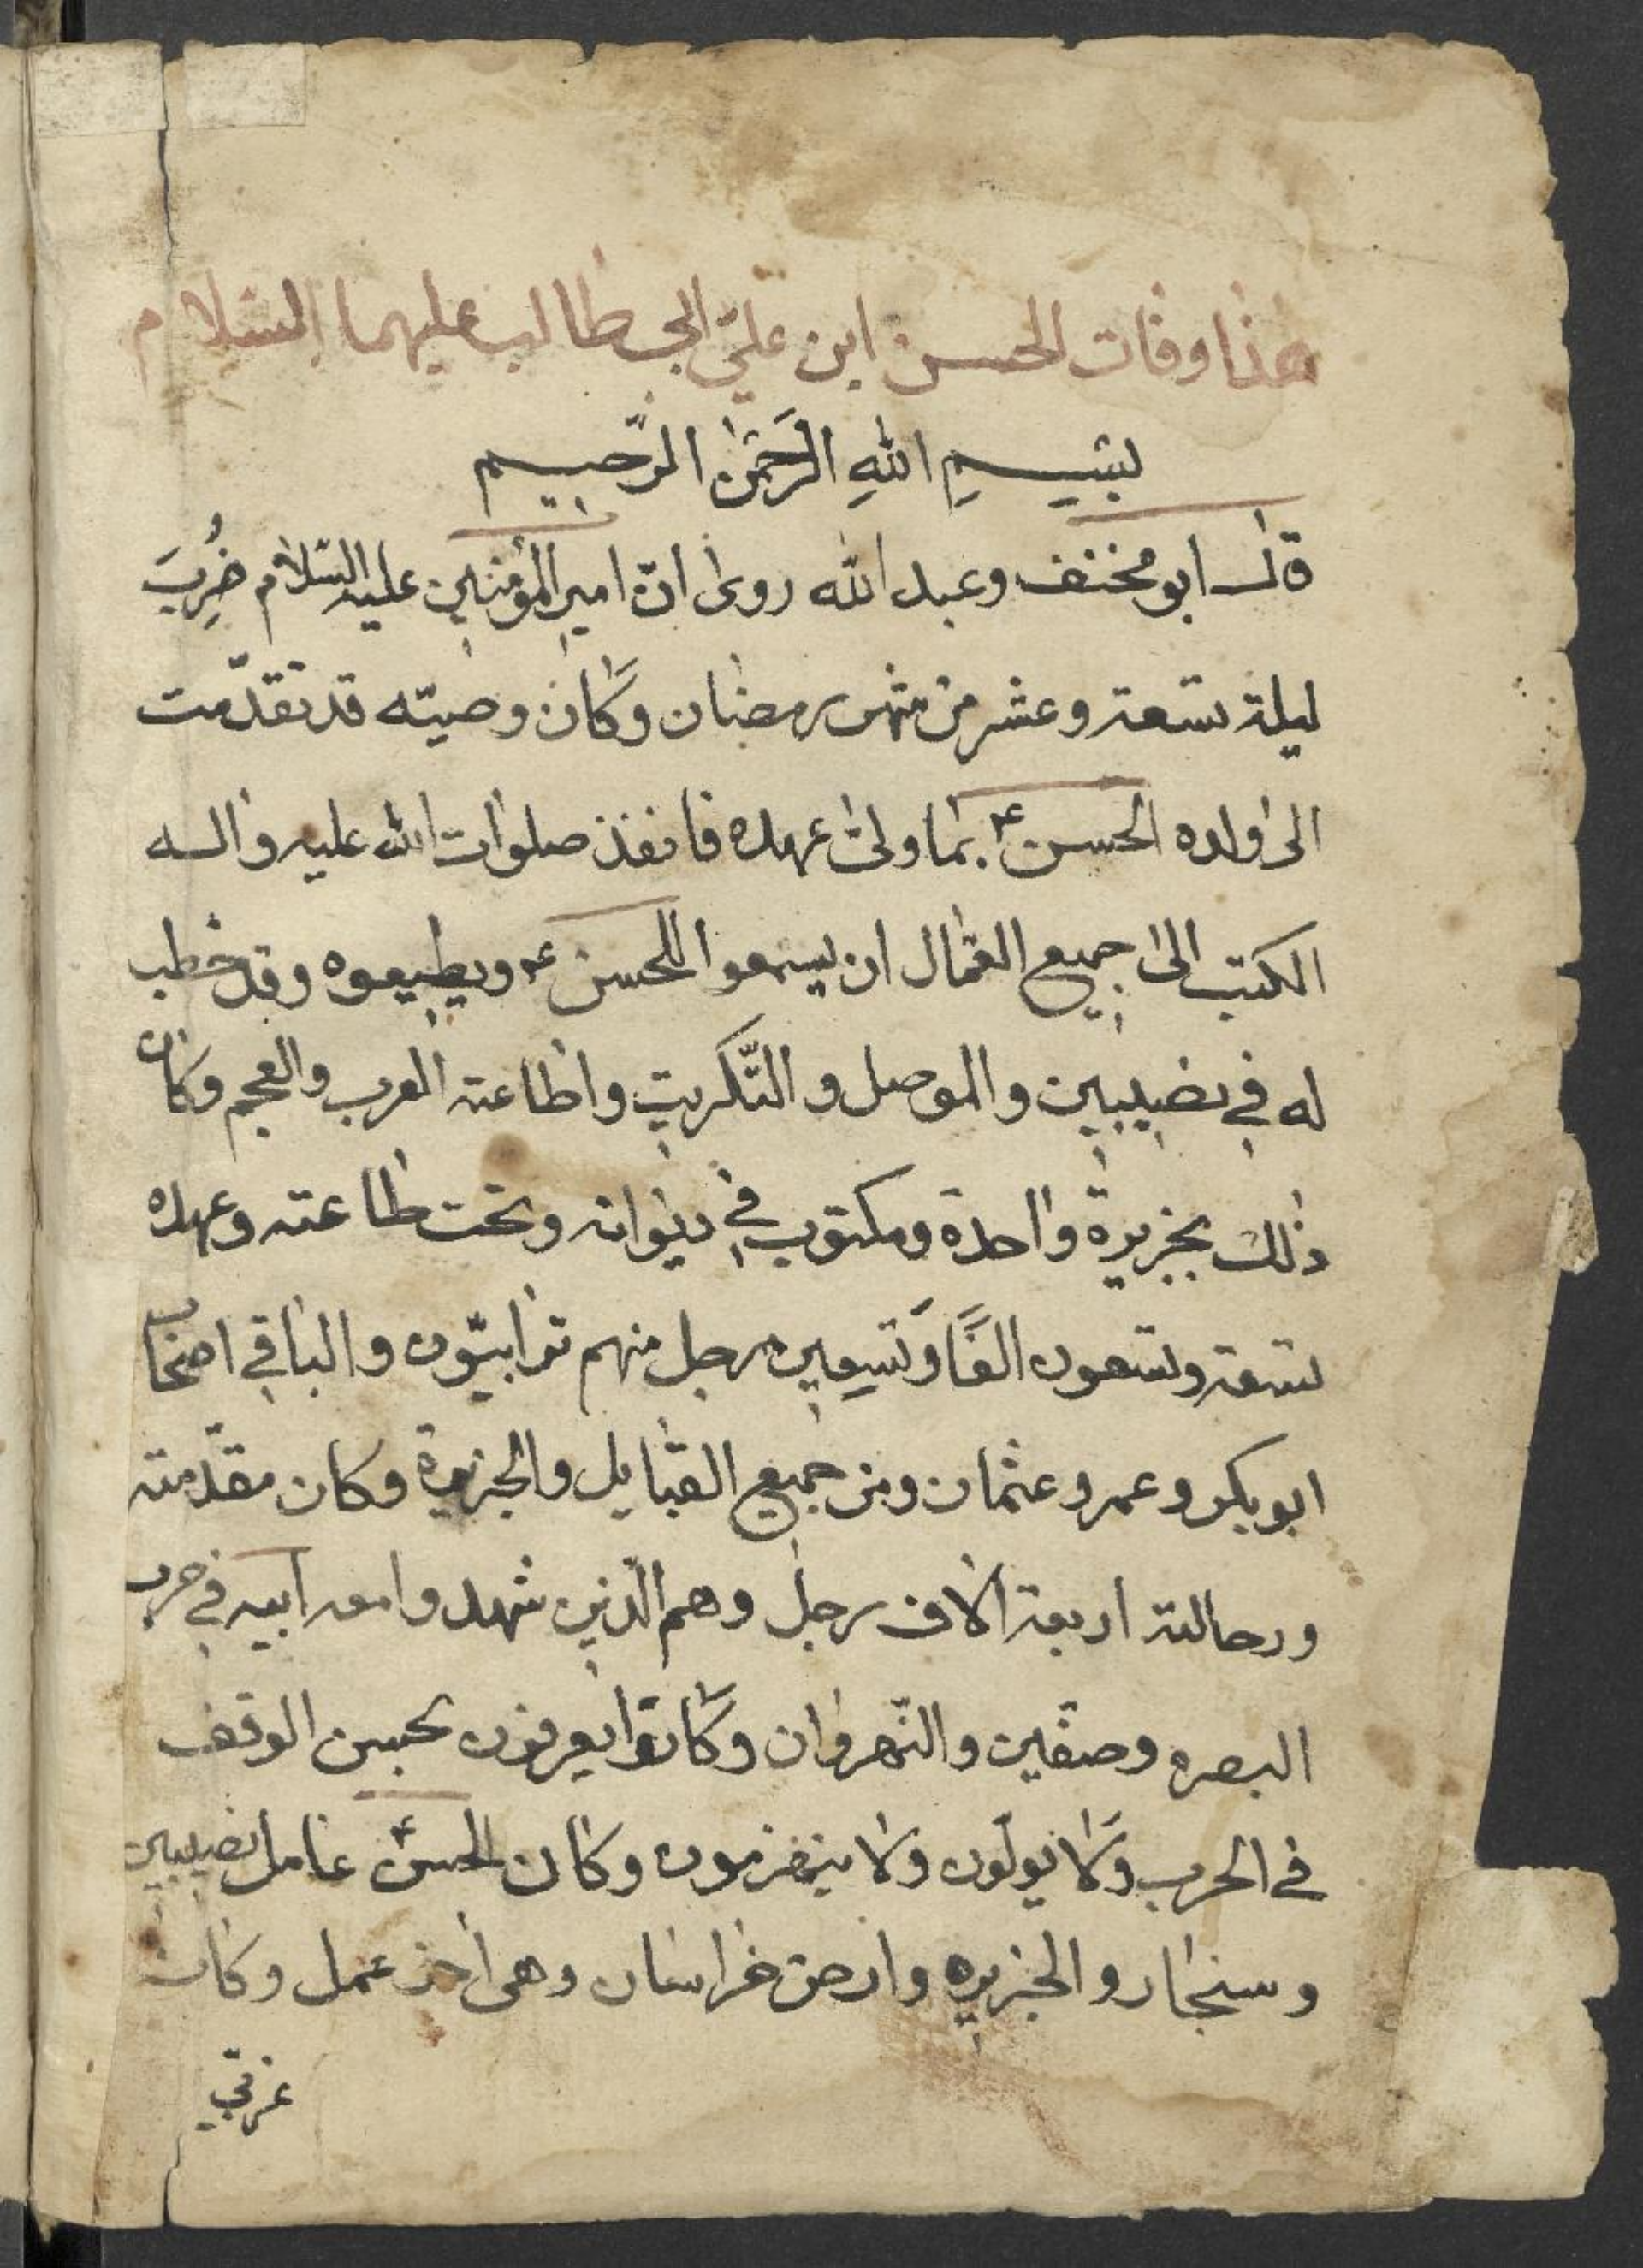 هذا وفات الحسن ابن علي ابي طالب عليهما السلام
بسم الله الرحمن الرحيم
قال ابو مخنف وعبد الله روى ان امير المؤمنين عليه السلام ضُرِبَ
ليلة تسعة وعشر من شهر رمضان وكان وصيّته قد تقدّمت
الى ولده الحسن ع بما ولى عهده فانفذ صلوات الله عليه واله
الكتب الى جميع العمّال ان يسمعوا للحسن ع ويطيعوه وقد خطب
له في نصيبين والموصل والتّكريت واطاعته العرب والعجم وكان
ذلك بجزيرة واحدة ومكتوب في ديوانه وتحت طاعته وعهده
تسعة وتسعون الفًا وتسعين رجل منهم ترابيّون والباقي اصحاب
ابو بكر وعمر وعثمان ومن جميع القبايل والجزيرة وكان مقدّمته
ورجالته اربعة الاف رجل وهم الّذين شهدوا مع ابيه في حرب
البصره وصفّين والنّهروان وكانوا يعرفون بحسن الوقف
في الحرب ولا يولّون ولا ينهزمون وكان الحسن ع عامل نصيبين
وسنجار والجزيره وارض خراسان وهى اخذ عمل وكان
غربي